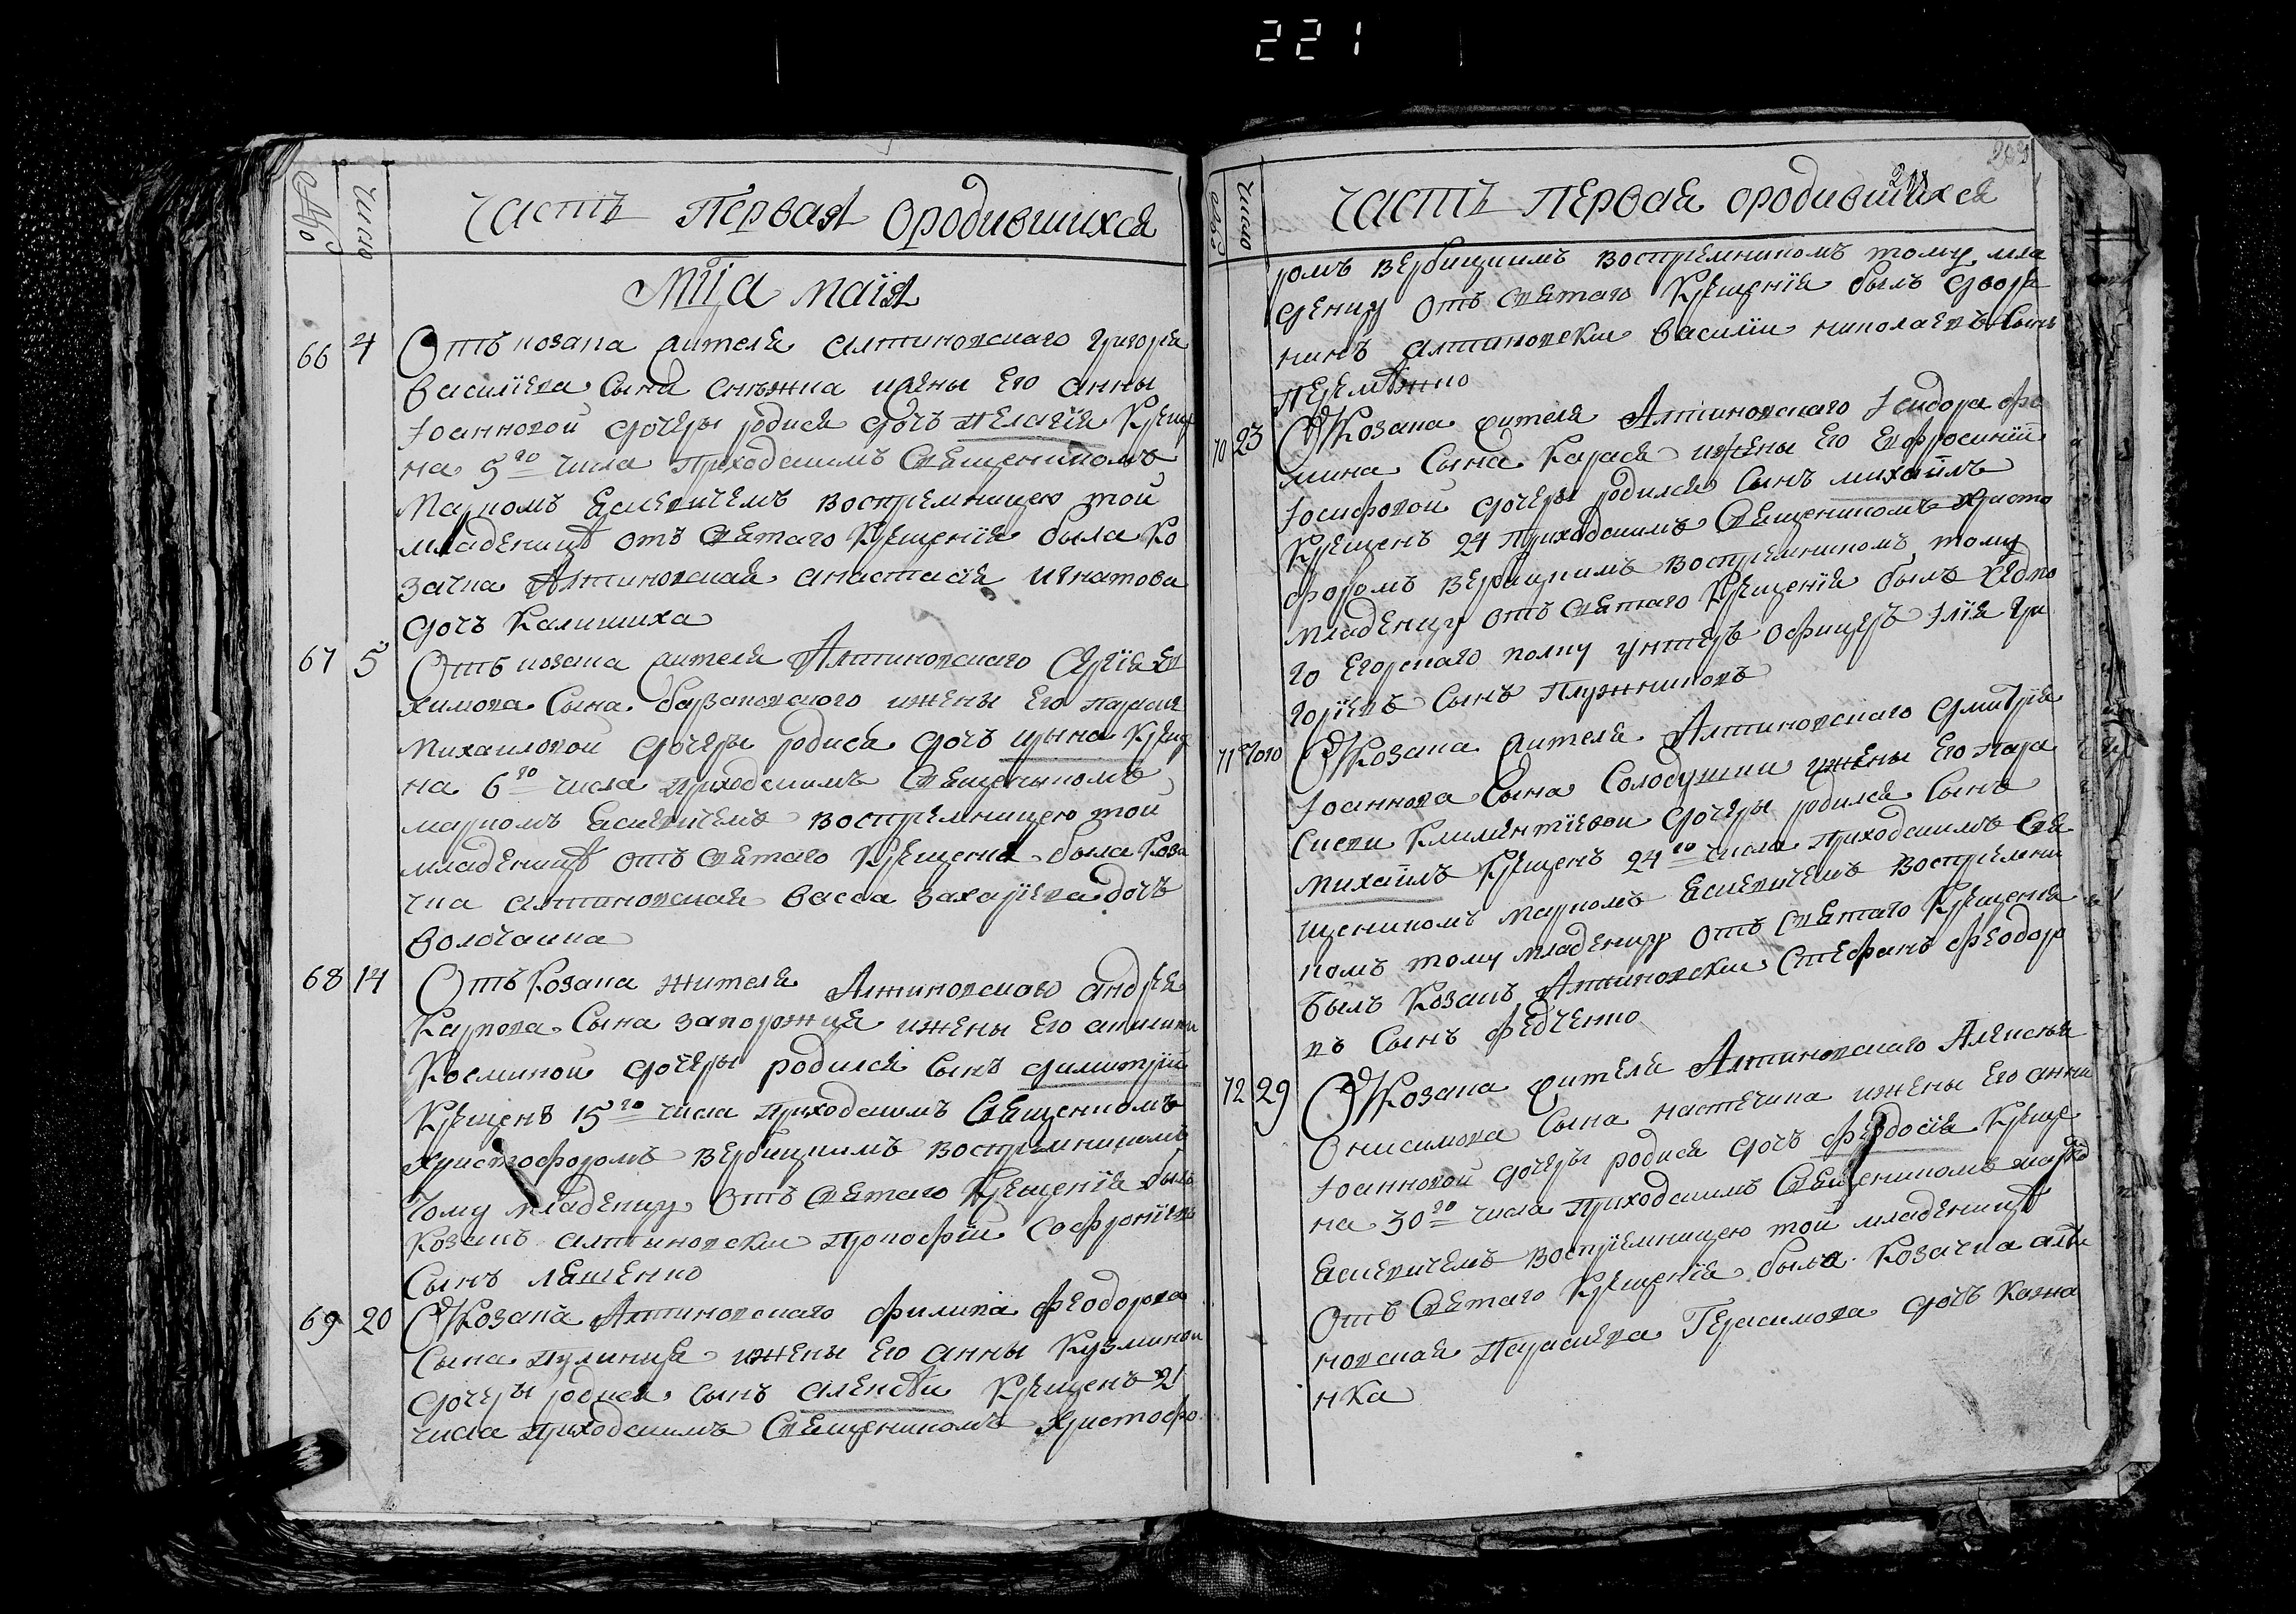 221
Число
Часть Первая ородившихся
Мца маїя
66 4 Отъ козака жителя алтиновского григорія
василїева сына снѣжка ижены его анны
Іоанновой дочеры родися дочъ пелагїя креще
на 5го числа приходскимъ священникомъ
маркомъ Есиевичемъ воспрѣемницею той
младеницѣ отъ святаго крещенїя была ко
зачка Алтиновская анастасїя игнатова
дочъ Калишиха
67 5 Отъ козака жителя Алтиновского Сергїя ев
химова сына барановского ижены его параск
михаиловой дочеры родися дочъ ирына креще
на 6го числа приходскимъ священыкомъ
маркомъ Есиевичемъ воспрѣемницею той
младеницѣ отъ святаго крещенїя была коза
чка алтиновская васса захарїева дочъ
волочаика
68 14 Отъ козака жителя Алтиновского андрея
карпова сына запорожця ижены его акилины
косминой дочеры родился сынъ димитрїй
крещенъ 15го числа приходскимъ священикомъ
христофоромъ вербицкимъ воспрѣемникомъ
тому младенцу отъ святаго крещенїя былъ
козакъ алтиновский прокофїй софронїевъ
сынъ ляшенко
69 20 От козака Алтиновского филипа феодорова
сына кулиница ижены его анны кузминой
дочеры родися сынъ алексѣй крещенъ 21
числа приходскимъ священникомъ христофо
Число
Часть первая ородившихся
ромъ вербицкимъ воспрѣемникомъ тому мла
денцу отъ святаго крещенїя былъ дворя
нинъ алтиновский василїй николаевъ сынъ
70 23 От козака жителя Алтиновского Ісидора фо
мина сына карася ижены его евфросинїи
Іосифовой дочеры родился сынъ михаилъ
крещенъ 24 приходскимъ священникомъ христо
форомъ вербицкимъ воспрѣемникомъ тому
младенцу отъ святаго крещенїя былъ
го егорского полку унтеръ офицеръ Ілїя гри
горїевъ сынъ плужниковъ
71 того От козака жителя Алтиновского дмитрїя
Іоаннова сына солодушки ижены его пара
скеви климентїевой дочеры родился сынъ
михаилъ крещенъ 24го числа приходскимъ свя
щеникомъ маркомъ Есиевичемъ воспрѣемни
комъ тому младенцу отъ святаго крещенїя
былъ козакъ Алтиновский стефанъ феодоро
въ сынъ федченко
72 29 От козака жителя Алтиновского Алексѣя
онисимова сына настечика ижены его анны
Іоанновой дочеры родися дочъ феодосїя креще
на 30го числа приходскимъ священикомъ марко
Есиевичемъ воспрїемницею той младеницѣ
отъ святаго крещенїя была козачка алти
новская параскева Герасимова дочъ кахна
нка